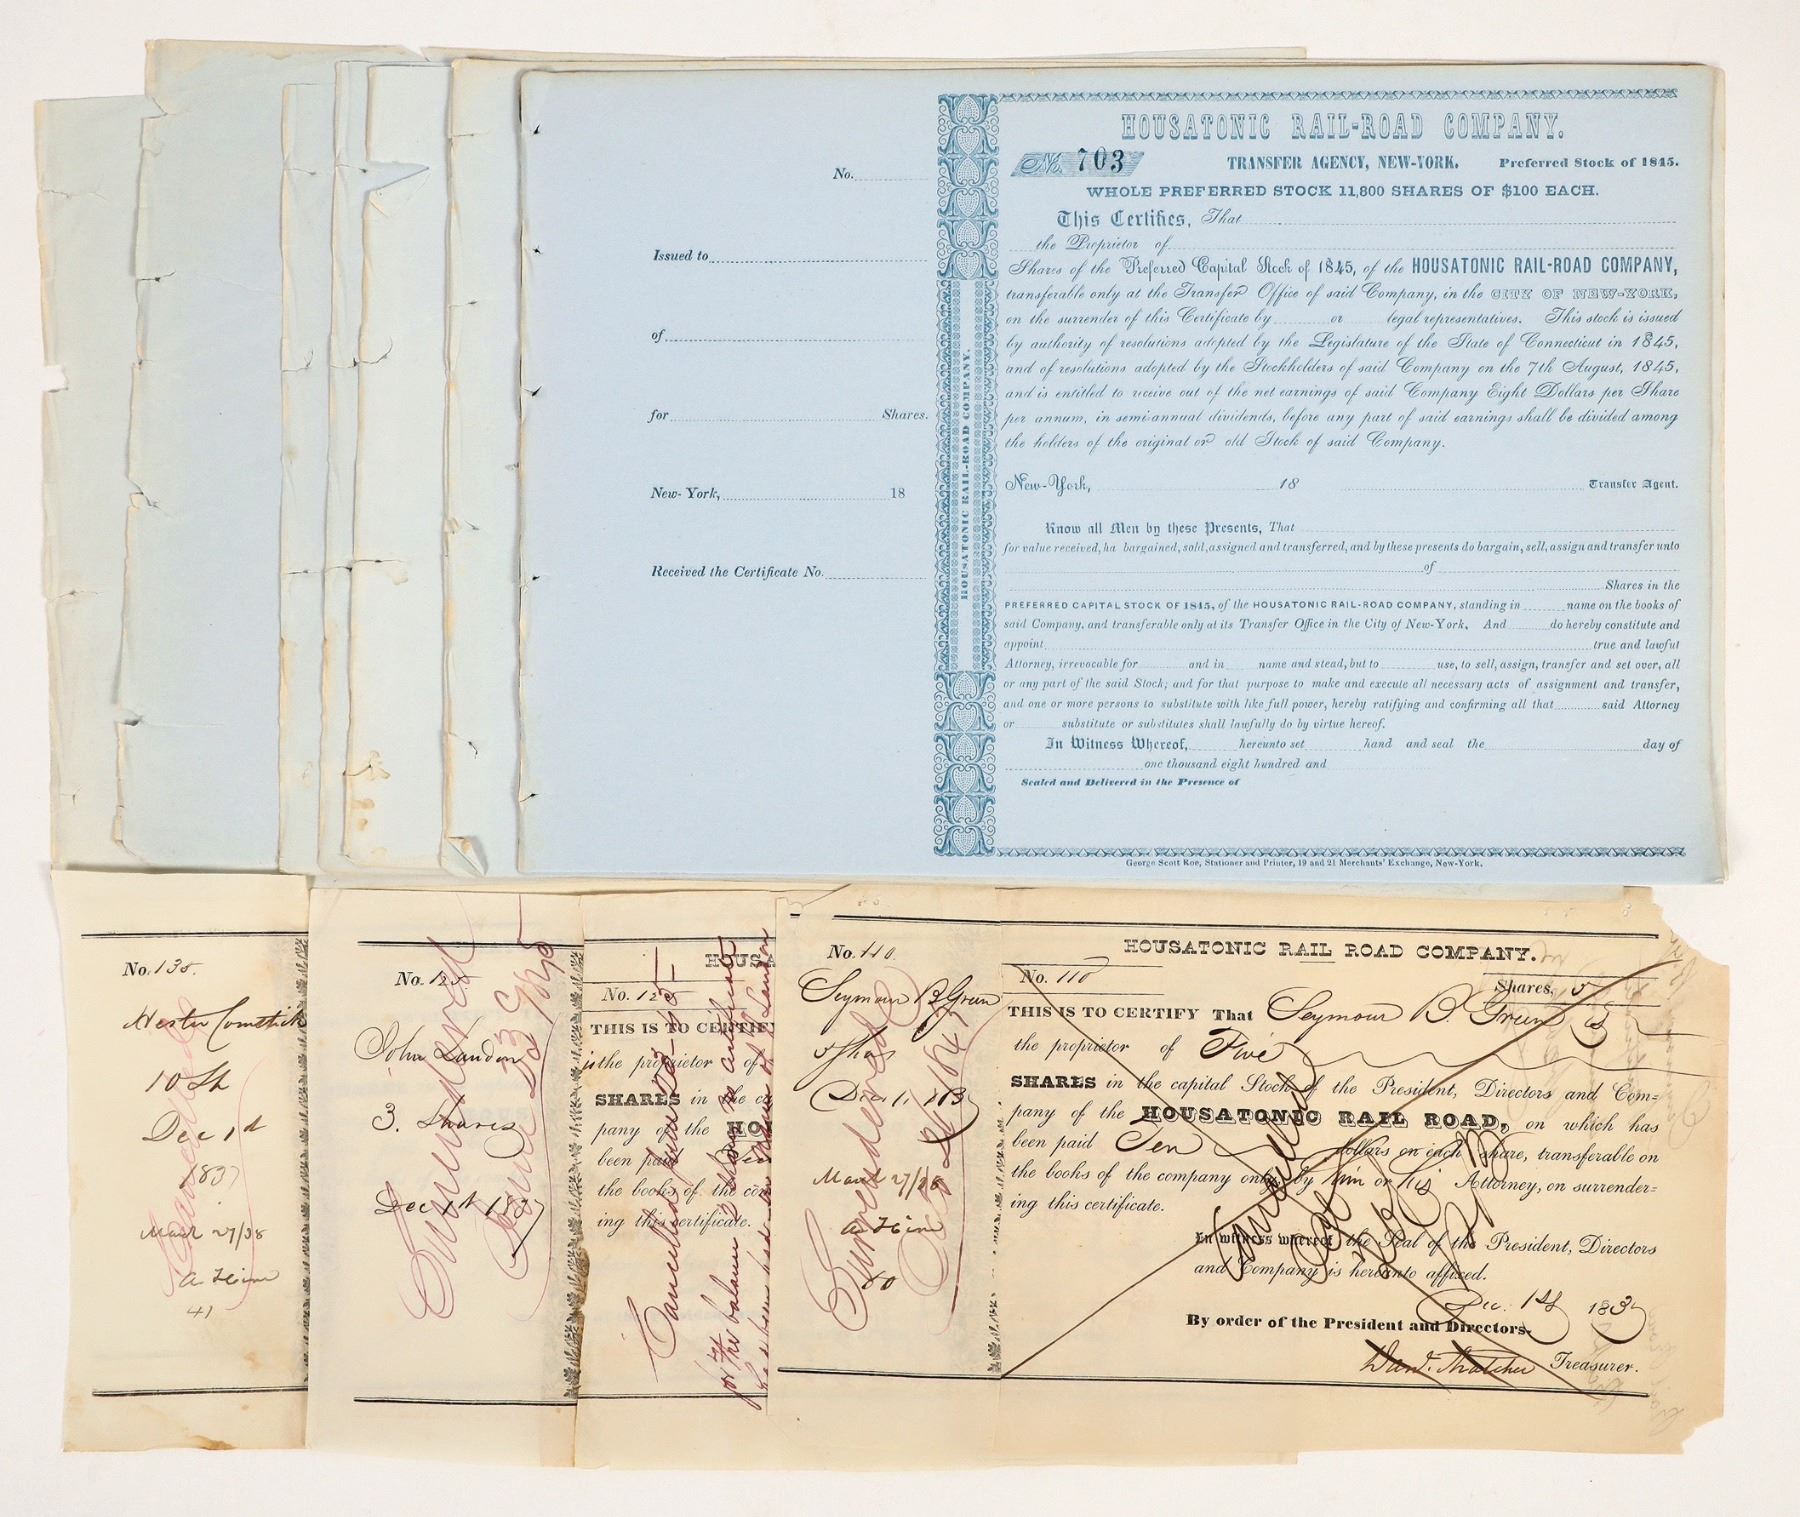 HOUSATONIC RAIL-ROAD COMPANY.
No. 703 TRANSFER AGENCY, NEW-YORK. Preferred Stock of 1845.
WHOLE PREFERRED STOCK 11,800 SHARES OF $100 EACH.
This Certifies, That
the Proprietor of
Shares of the Preferred Capital Stock of 1845, of the HOUSATONIC RAIL-ROAD COMPANY,
transferable only at the Transfer Office of said Company, in the CITY OF NEW-YORK,
on the surrender of this Certificate by or legal representatives. This stock is issued
by authority of resolutions adopted by the Legislature of the State of Connecticut in 1845,
and of resolutions adopted by the Stockholders of said Company on the 7th August, 1845,
and is entitled to receive out of the net earnings of said Company Eight Dollars per Share
per annum, in semi-annual dividends, before any part of said earnings shall be divided among
the holders of the original or old Stock of said Company.
New-York, 18 Transfer Agent.
Know all Men by these Presents, That
for value received, ha bargained, sold, assigned and transferred, and by these presents do bargain, sell, assign and transfer unto
of
Shares in the
PREFERRED CAPITAL STOCK OF 1845, of the HOUSATONIC RAIL-ROAD COMPANY, standing in name on the books of
said Company, and transferable only at its Transfer Office in the City of New-York, And do hereby constitute and
appoint true and lawful
Attorney, irrevocable for and in name and stead, but to use, to sell, assign, transfer and set over, all
or any part of the said Stock; and for that purpose to make and execute all necessary acts of assignment and transfer,
and one or more persons to substitute with like full power, hereby ratifying and confirming all that said Attorney
or substitute or substitutes shall lawfully do by virtue hereof.
In Witness Whereof, hereunto set hand and seal the day of
one thousand eight hundred and
Sealed and Delivered in the Presence of
George Scott Roe, Stationer and Printer, 19 and 21 Merchants' Exchange, New-York.
HOUSATONIC RAIL-ROAD COMPANY.
No.
Issued to
of
for Shares.
New-York, 18
Received the Certificate No.
No. 138.
Hester Comstick
10 Sh
Dec 1st
1837
March 27/38
41
No. 125.
John Landon
3. Shares
Dec 1st 1837
Surrendered
HOUSA
No. 125
THIS IS TO CERTIFY
is the proprietor of
SHARES in the ca
pany of the HO
been paid
the books of the com
ing this certificate.
Cancelled
for the balance
No. 110.
Seymour B Green
5 Shas
Dec 1, 1837
March 27/38
80
Surrendered
HOUSATONIC RAIL ROAD COMPANY.
No. 110 Shares, 5
THIS IS TO CERTIFY That Seymour B. Green is
the proprietor of Five
SHARES in the capital Stock of the President, Directors and Com=
pany of the HOUSATONIC RAIL ROAD, on which has
been paid Ten dollars on each share, transferable on
the books of the company only by him or his Attorney, on surrender=
ing this certificate.
In witness whereof the Seal of the President, Directors
and Company is hereunto affixed.
Dec. 1st 1837
By order of the President and Directors.
Treasurer.
Cancelled